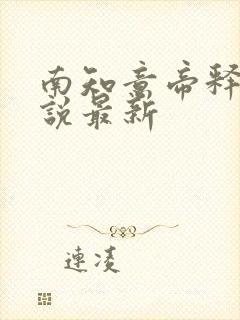 南知意帝释
說最新
連凌